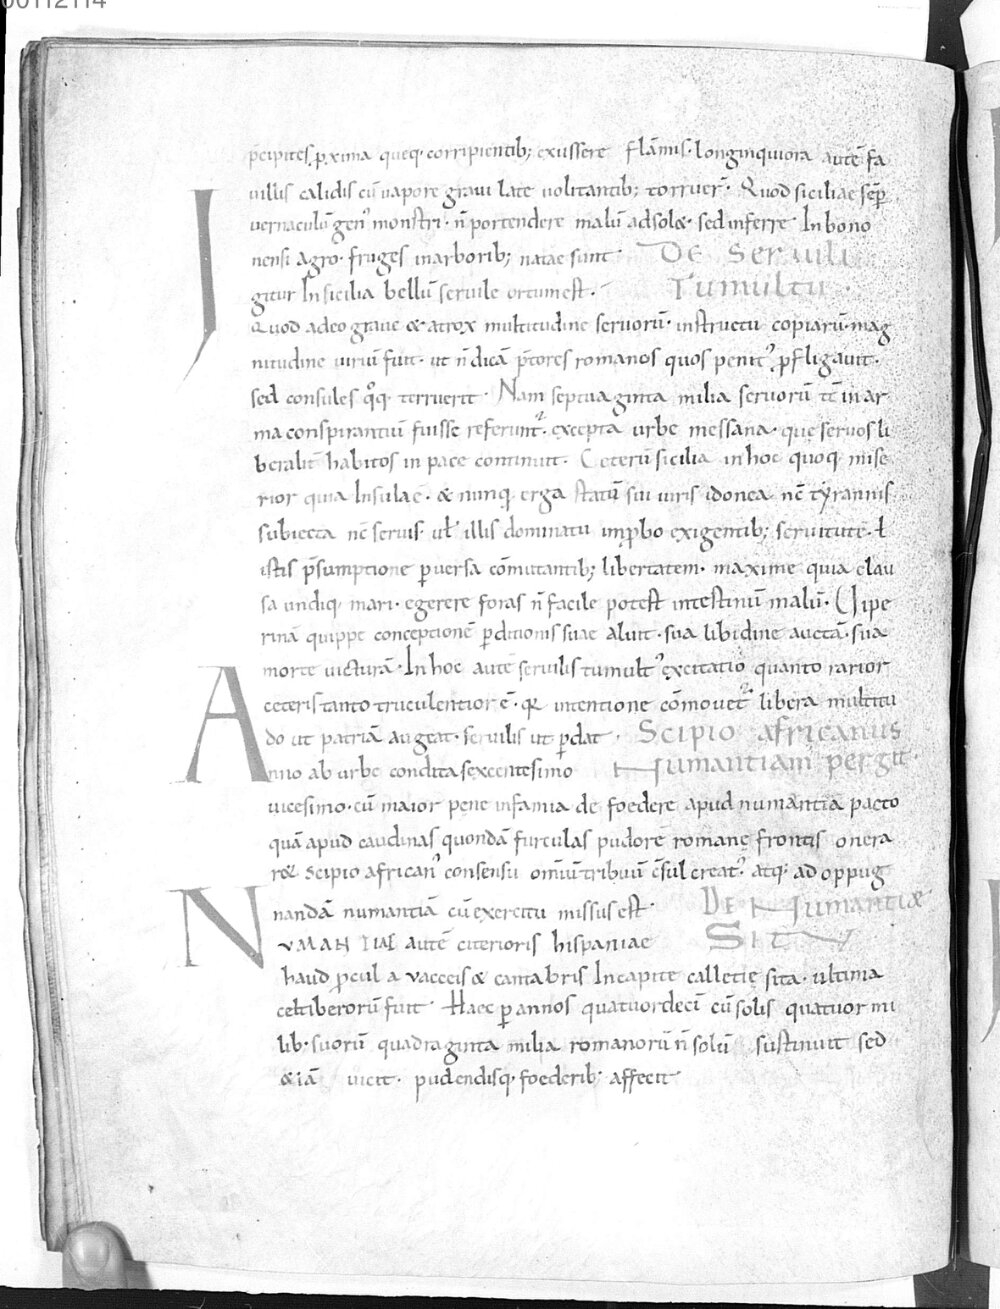 00112114
p̄cipites ꝓxima queq; corripientib; exussere flāmis. longinquiora autē fa
uillis calidis cū uapore graui late uolitantib; torruer̄. Quod siciliae sēp
uernaculū gen᾽ monstri. n̄ portendere malū adsolet sed inferre. In bono
nensi agro. fruges inarborib; natae sunt. DE SerUili
Igitur In sicilia bellū seruile ortum est. Tumultu.
Quod adeo graue & atrox multitudine seruorū. instructu copiarū. mag
nitudine uiriū fuit. ut n̄ dicā p̄tores romanos quos penit᾽ ꝓfligauit.
sed consules q̊q; terruerit. Nam septuaginta milia seruorū tc̄ in ar
ma conspirantiū fuisse referunt᾽. excepta urbe messana. que seruos li
beralit̄ habitos in pace continuit. Ceterū sicilia in hoc quoq; mise
rior quia Insulae. & nunq̄ erga statū sui uiris idonea nc̄ tyrannis
subiecta nc̄ seruis. uł illis dominatu imꝓbo exigentib; seruitutē. ł
istis p̄sumptione ꝑuersa cōmutantib; libertatem. maxime quia clau
sa undiq; mari. egerere foras n̄ facile potest intestinū malū. Uipe
rinā quippe conceptionē ꝑditionis suae aluit. sua libidine auctā. sua
morte uicturā. In hoc autē seruilis tumult᾽ excitatio quanto rarior
ceteris tanto truculentior ē. qr intentione cōmouet᾽ libera multitu
do ut patriā augeat. seruilis ut ꝑdat. Scipio africanus
Anno ab urbe condita sexcentesimo Numantiam pergit.
uicesimo. cū maior pene infamia de foedere apud numantiā pacto
quā apud caudinas quondā furculas pudorē romanę frontis onera
ret scipio african᾽ consensu omiū tribuū c̄sul creat᾽. atq; ad oppug
nandā numantiā cū exercitu missus est. DE Numantiae
NUMANTIAE autē citerioris hispaniae SIT
haud ꝓcul a vacceis & cantabris In capite calletię sita. ultima
celtiberorū fuit. Haec ꝑ annos quatuordeci cū solis quatuor mi
lib; suorū quadraginta milia romanorū n̄ solū sustinuit sed
&iā uicit. pudendisq; foederib; affecit